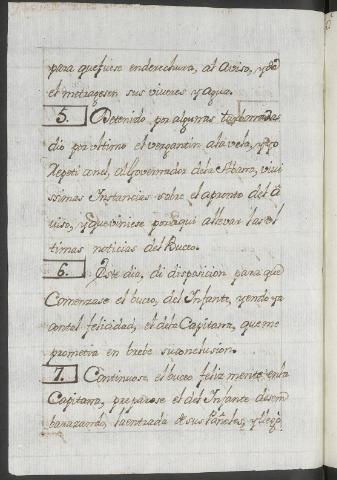 para que fuese enderechura, al Aviso, y da
el metragesen sus viveres y Agua.
5. Detenido por algunas turbonadas
dio por ultimo el vergantin ala vela, y yo
Repeti con el Governador dela Habana, vivi
ssimas Instancias sobre el apronto del A
viso, y que viniese por aqui allevar las ul
timas noticias del Buceo.
6. Este dia, di disposicion para que
Comenzase el buceo, del Infante, yendo ya
con tal felicidad, el dela Capitana, que me
prometia en brebe su conclusion.
7. Continuose el buceo feliz mente en la
Capitana, preparose el del Infante desem
barazando, la entrada de sus Pañoles, y llegó